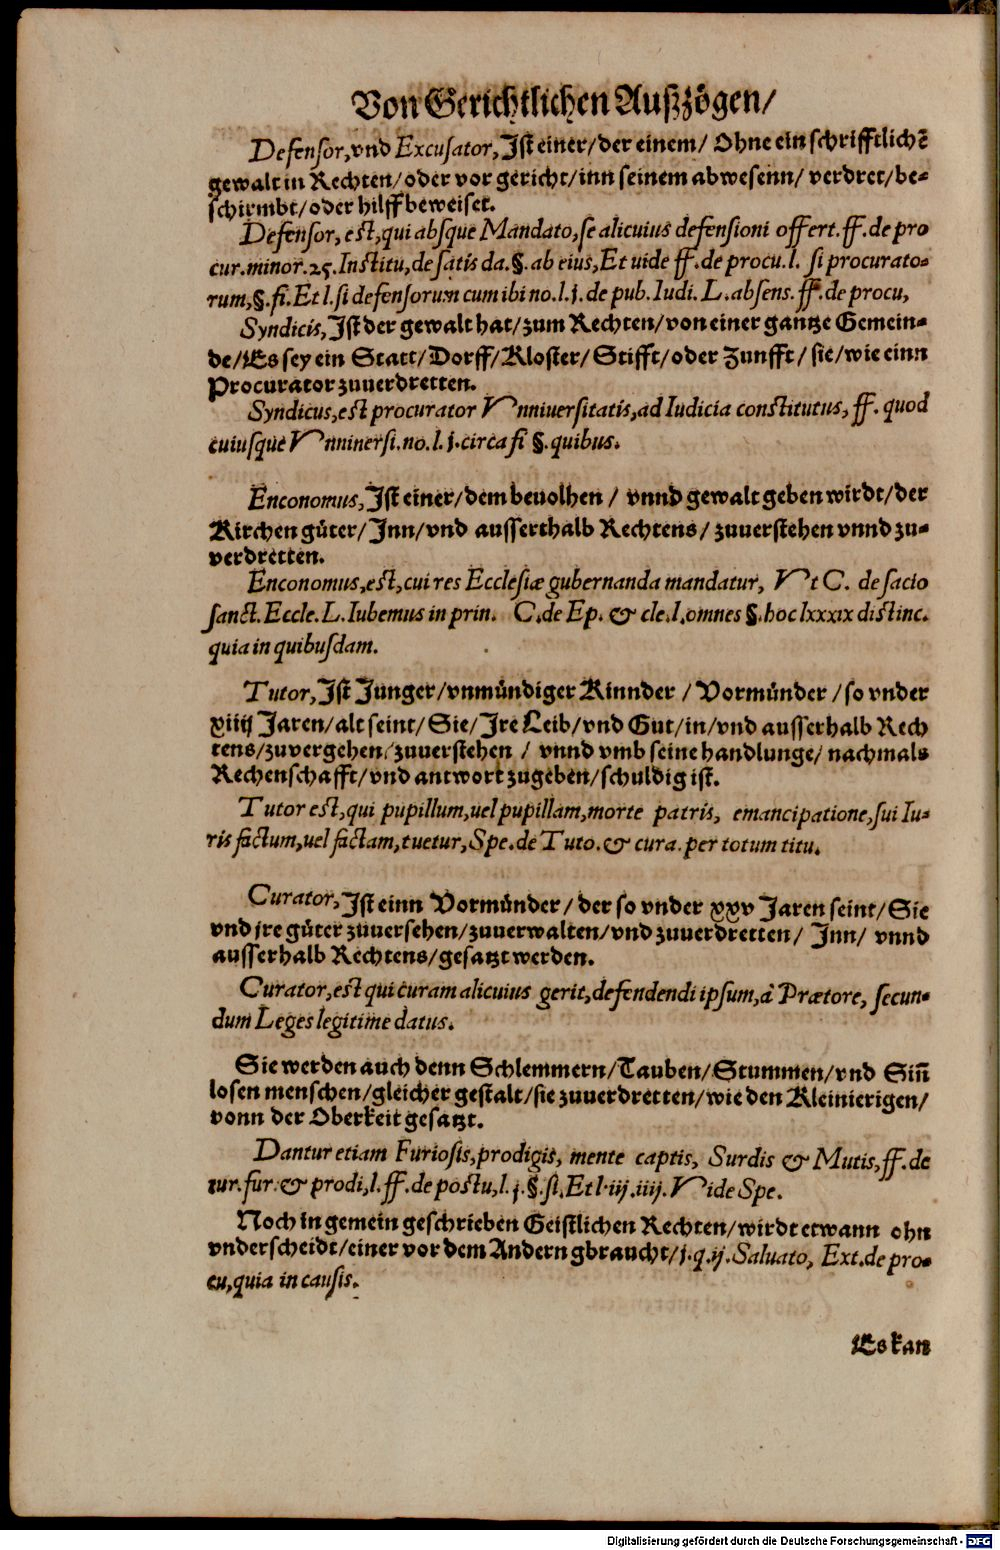 Von Gerichtlichen Außzögen/
Defensor, vnd Excusator, Jst einer/der einem/ Ohne ein schrifftlichē
gewalt in Rechten/oder vor gericht/inn seinem abwesenn/ verdret/be-
schirmbt/oder hilff beweiset.
Defensor, est, qui absque Mandato, se alicuius defensioni offert. ff. de pro
cur. minor. 25. Institu, de satis da. §. ab eius, Et uide ff. de procu. l. si procurato-
rum, §. fi. Et l. si defensorum cum ibi no. l. j. de pub. Iudi. L. absens. ff. de procu,
Syndicis, Jst der gewalt hat/zum Rechten/von einer gantze Gemein-
de/Es sey ein Statt/Dorff/Kloster/Stifft/oder Zunfft/ sie/wie einn
Procurator zuuerdretten.
Syndicus, est procurator Vnniuersitatis, ad Iudicia constitutus, ff. quod
cuiusque Vnninersi. no. l. j. circa fi §. quibus.
Enconomus, Jst einer/dem beuolhen / vnnd gewalt geben wirdt/der
Kirchen güter/ Jnn/vnd ausserthalb Rechtens/ zuuerstehen vnnd zu-
verdretten.
Enconomus, est, cui res Ecclesiæ gubernanda mandatur, Vt C. de sacio
sanct. Eccle. L. Iubemus in prin. C. de Ep. & cle. l. omnes §. hoc lxxxix distinc.
quia in quibusdam.
Tutor, Jst Junger/vnmündiger Kinnder / Vormünder / so vnder
xiiij Jaren/alt seint/Sie/Jre Leib/vnd Gut/in/vnd ausserhalb Rech
tens/zuvergehen/zuuerstehen / vnnd vmb seine handlunge/ nachmals
Rechenschafft/vnd antwort zugeben/schuldig ist.
Tutor est, qui pupillum, uel pupillam, morte patris, emancipatione, sui Iu-
ris factum, uel factam, tuetur, Spe. de Tuto. & cura. per totum titu.
Curator, Jst einn Vormünder / der so vnder xxv Jaren seint/Sie
vnd jre güter zuuersehen/zuuerwalten/vnd zuuerdretten/ Jnn/ vnnd
ausserhalb Rechtens/gesatzt werden.
Curator, est qui curam alicuius gerit, defendendi ipsum, à Prætore, secun-
dum Leges legitime datus.
Sie werden auch denn Schlemmern/Tauben/Stummen/vnd Siñ
losen menschen/gleicher gestalt/sie zuuerdretten/wie den Kleinierigen/
vonn der Oberkeit gesatzt.
Dantur etiam Furiosis, prodigis, mente captis, Surdis & Mutis, ff. de
tur. fur. & prodi, l. ff. de postu, l. j. §. si. Et l. iij. iiij. Vide Spe.
Noch in gemein geschrieben Geistlichen Rechten/wirdt etwann ohn
vnderscheidt/einer vor dem Andern gbraucht/j. q. ij. Saluato, Ext. de pro-
cu, quia in causis.
Es kan
Digitalisierung gefördert durch die Deutsche Forschungsgemeinschaft - DFG